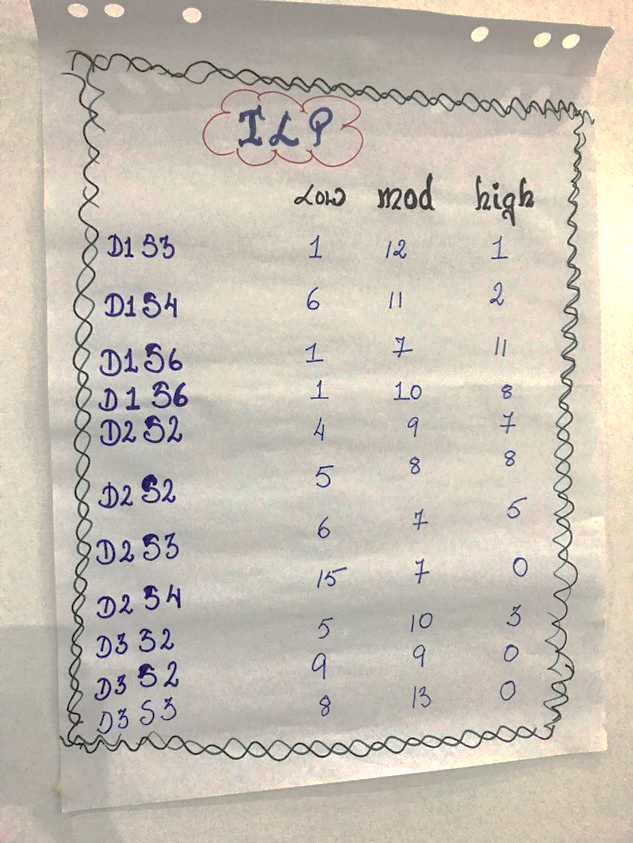 ILP
Low mod high
D1 S3 1 12 1
D1 S4 6 11 2
D1 S6 1 7 11
D1 S6 1 10 8
D2 S2 4 9 7
D2 S2 5 8 8
D2 S3 6 7 5
D2 S4 15 7 0
D3 S2 5 10 3
D3 S2 9 9 0
D3 S3 8 13 0